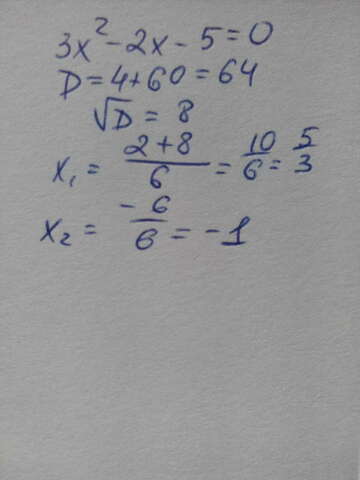 3x² - 2x - 5 = 0
D = 4 + 60 = 64
√D = 8
x₁ = (2 + 8)/6 = 10/6 = 5/3
x₂ = -6/6 = -1